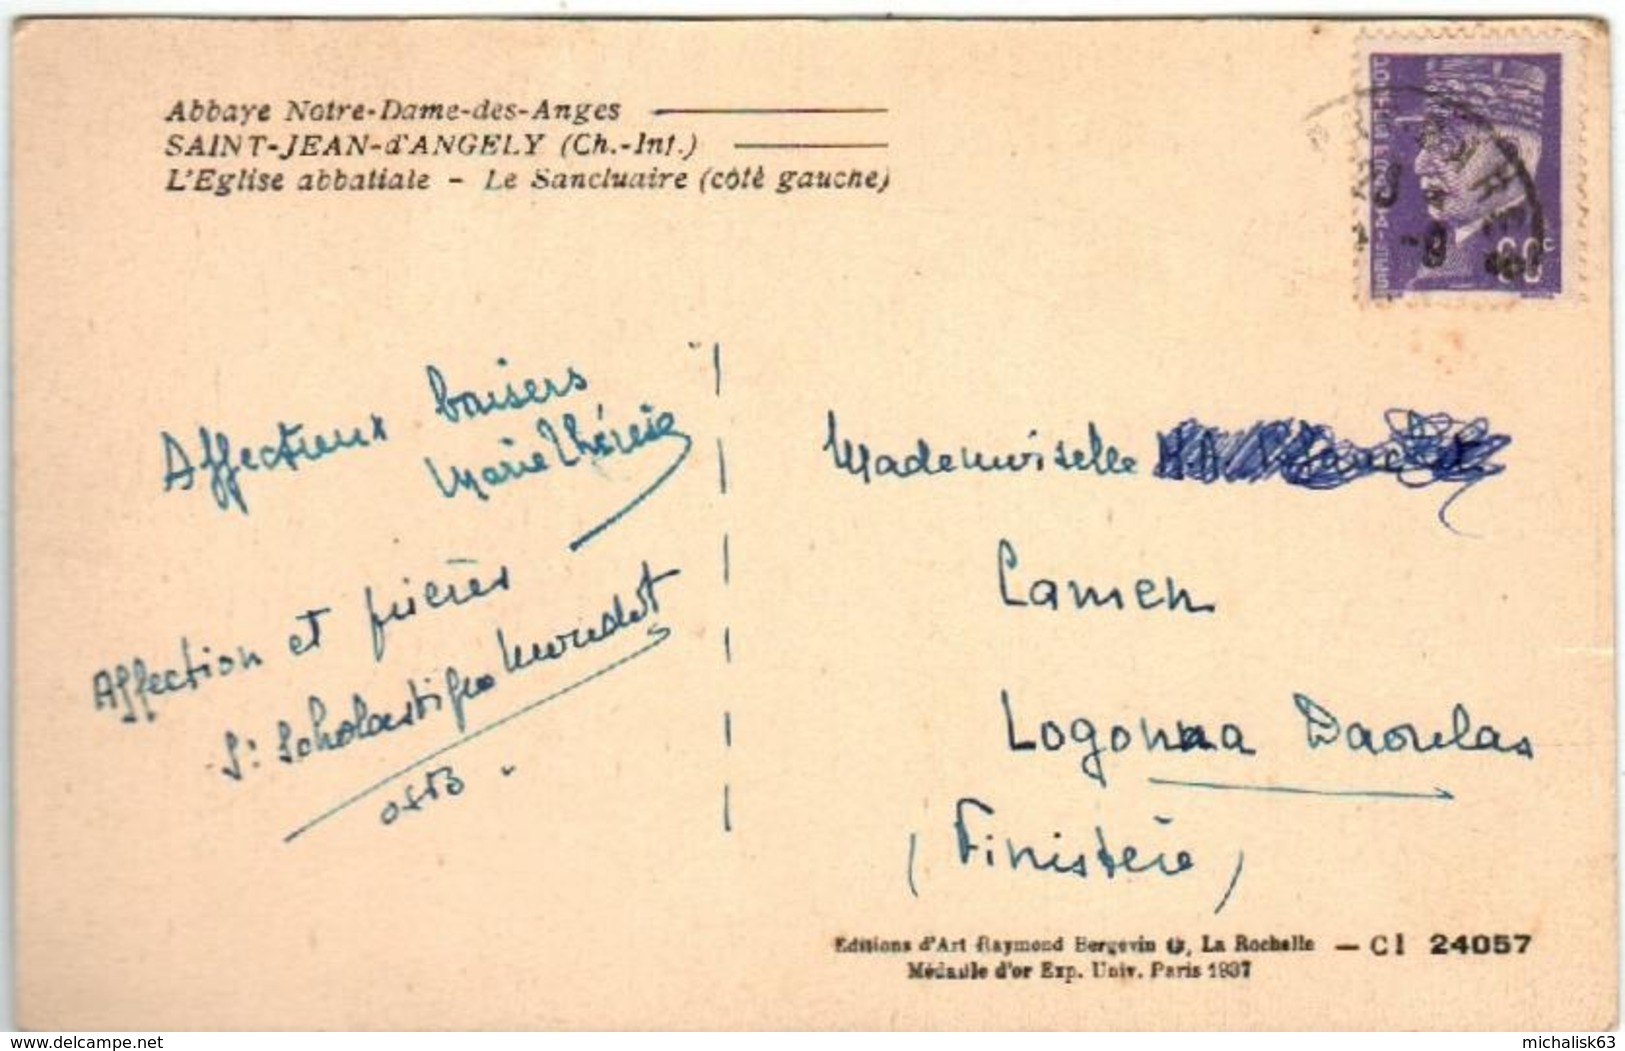 Abbaye Notre-Dame-des-Anges
SAINT-JEAN-d'ANGELY (Ch.-Inf.)
L'Eglise abbatiale - Le Sanctuaire (côté gauche)
Affectueux baisers
Marie Thérèse
Affection et prières
Sr Scholastique
OSB.
Mademoiselle
Camen
Logonna Daoulas
(Finistère)
Editions d'Art Raymond Bergevin, La Rochelle — Cl 24057
Médaille d'or Exp. Univ. Paris 1937
60c
www.delcampe.net
michalisk63